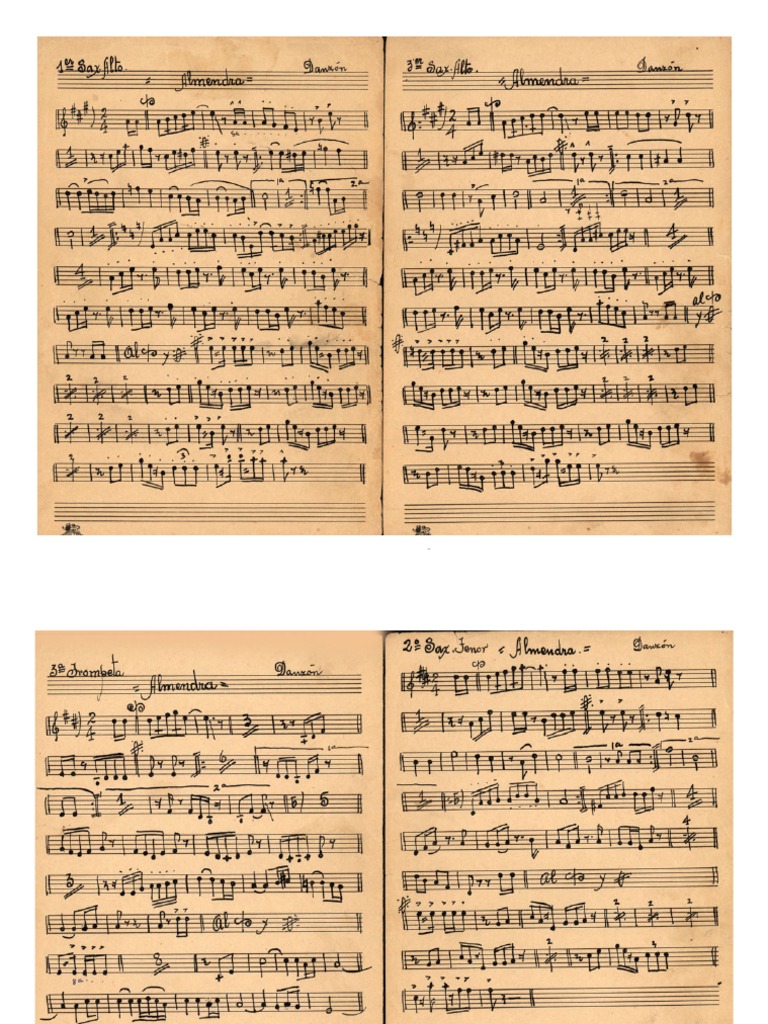 1er Sax Alto.
= Almendra =
Danzón
1a
2a
Al 𝄌 y
3er Sax. Alto.
= Almendra =
Danzón
1a
2a
al 𝄌
y
3a Trompeta
= Almendra =
Danzón
1a
2a
Al 𝄌 y
2o Sax. Tenor
= Almendra. =
Danzón
1a
2a
al 𝄌 y